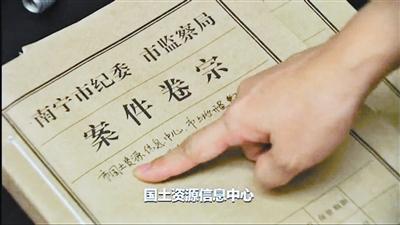 南宁市纪委 市监察局
案件卷宗
市国土资源信息中心、市土地储备
国土资源信息中心